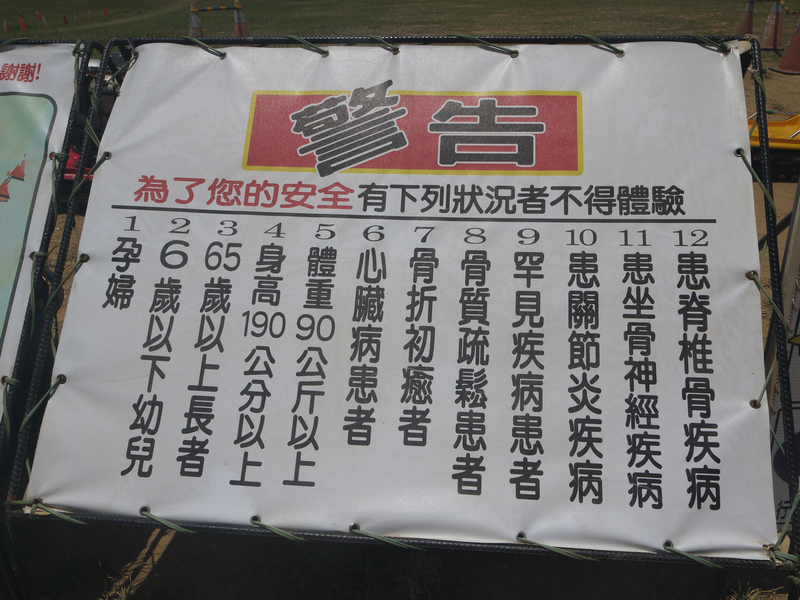 謝謝!
警告
為了您的安全有下列狀況者不得體驗
1 孕婦
2 6歲以下幼兒
3 65歲以上長者
4 身高190公分以上
5 體重90公斤以上
6 心臟病患者
7 骨折初癒者
8 骨質疏鬆患者
9 罕見疾病患者
10 患關節炎疾病
11 患坐骨神經疾病
12 患脊椎骨疾病
行